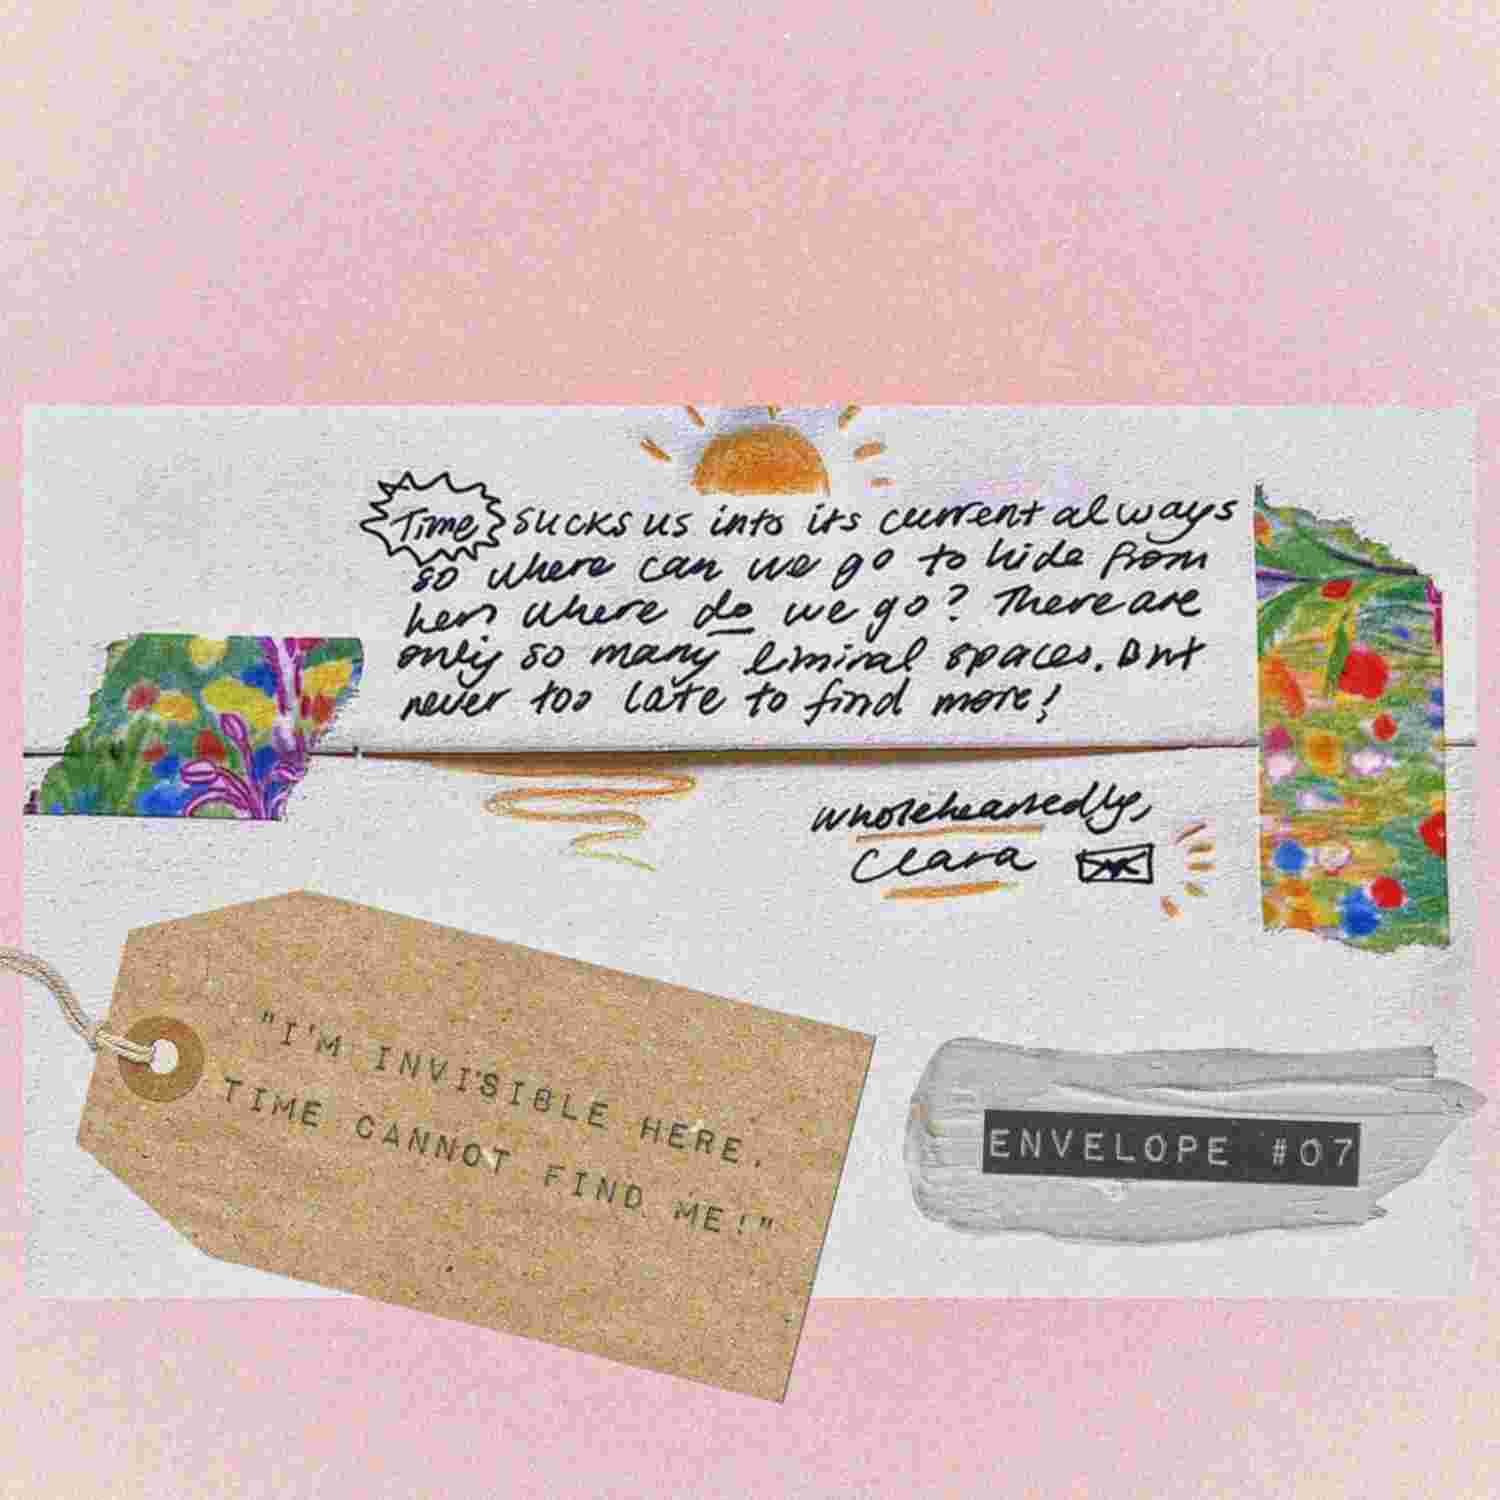 Time sucks us into its current always
so where can we go to hide from
her? Where do we go? There are
only so many liminal spaces. But
never too late to find more!
wholeheartedly,
Clara
"I'M INVISIBLE HERE.
TIME CANNOT FIND ME!"
ENVELOPE #07